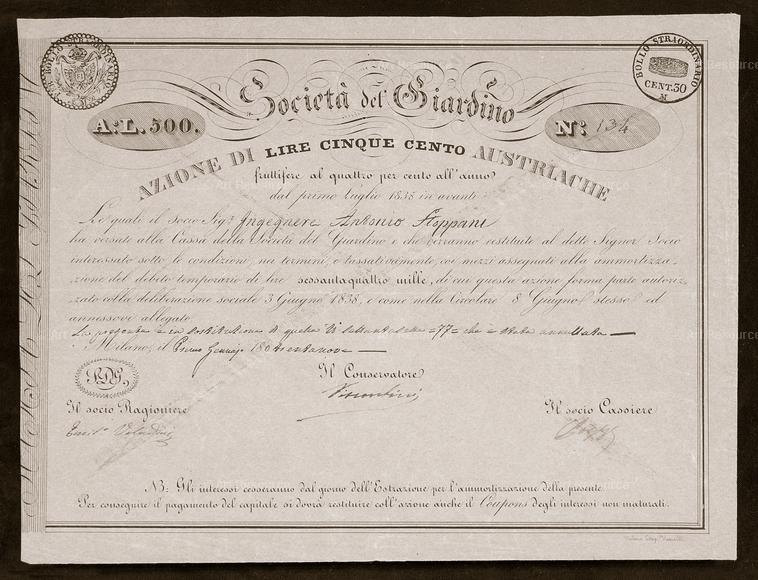 BOLLO STRAORDINARIO
BOLLO STRAORDINARIO
CENT. 50
M
Società del Giardino
A: L. 500.
N: 134
AZIONE DI LIRE CINQUE CENTO AUSTRIACHE
fruttifere al quattro per cento all'anno
dal primo luglio 1838 in avanti
Le quali il Socio Sig.r Ingegnere Antonio Stoppani
ha versate alla Cassa della Società del Giardino e che verranno restituite al detto Signor Socio
interessato sotto le condizioni, nei termini, e tassativamente coi mezzi assegnati alla ammortizza-
zione del debito temporario di lire sessantaquattro mille, di cui questa azione forma parte autoriz-
zato colla deliberazione sociale 3 Giugno 1838, e come nella Circolare 8 Giugno stesso ed
annessovi allegato.
La presente è in sostituzione a quella N. settantasette =77= che è stata annullata
Milano, il Primo Gennajo 180trentanove
Il Conservatore
Il socio Ragioniere
Il socio Cassiere
NB: Gli interessi cesseranno dal giorno dell'Estrazione per l'ammortizzazione della presente.
Per conseguire il pagamento del capitale si dovrà restituire coll'azione anche il Coupons degli interessi non maturati.